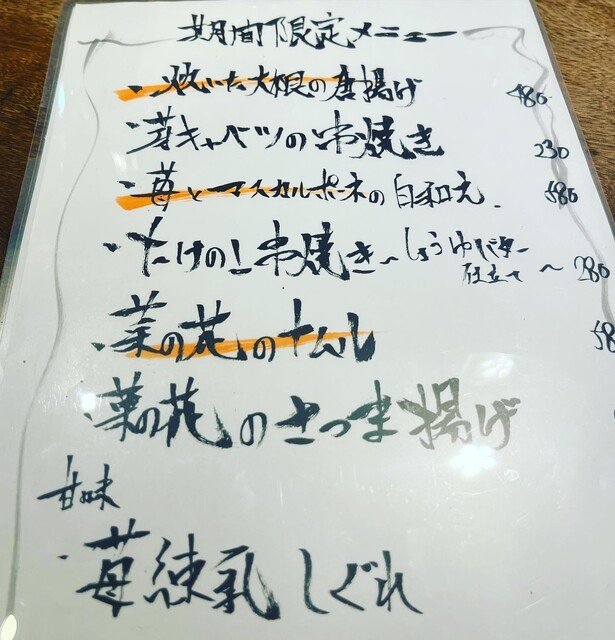 期間限定メニュー
・炊いた大根の唐揚げ 480
・芽キャベツの串焼き 230
・苺とマスカルポーネの白和え 580
・たけのこ串焼き~しょうゆバター仕立て~ 280
・菜の花のナムル
・菜の花のさつま揚げ
甘味
・苺練乳しぐれ